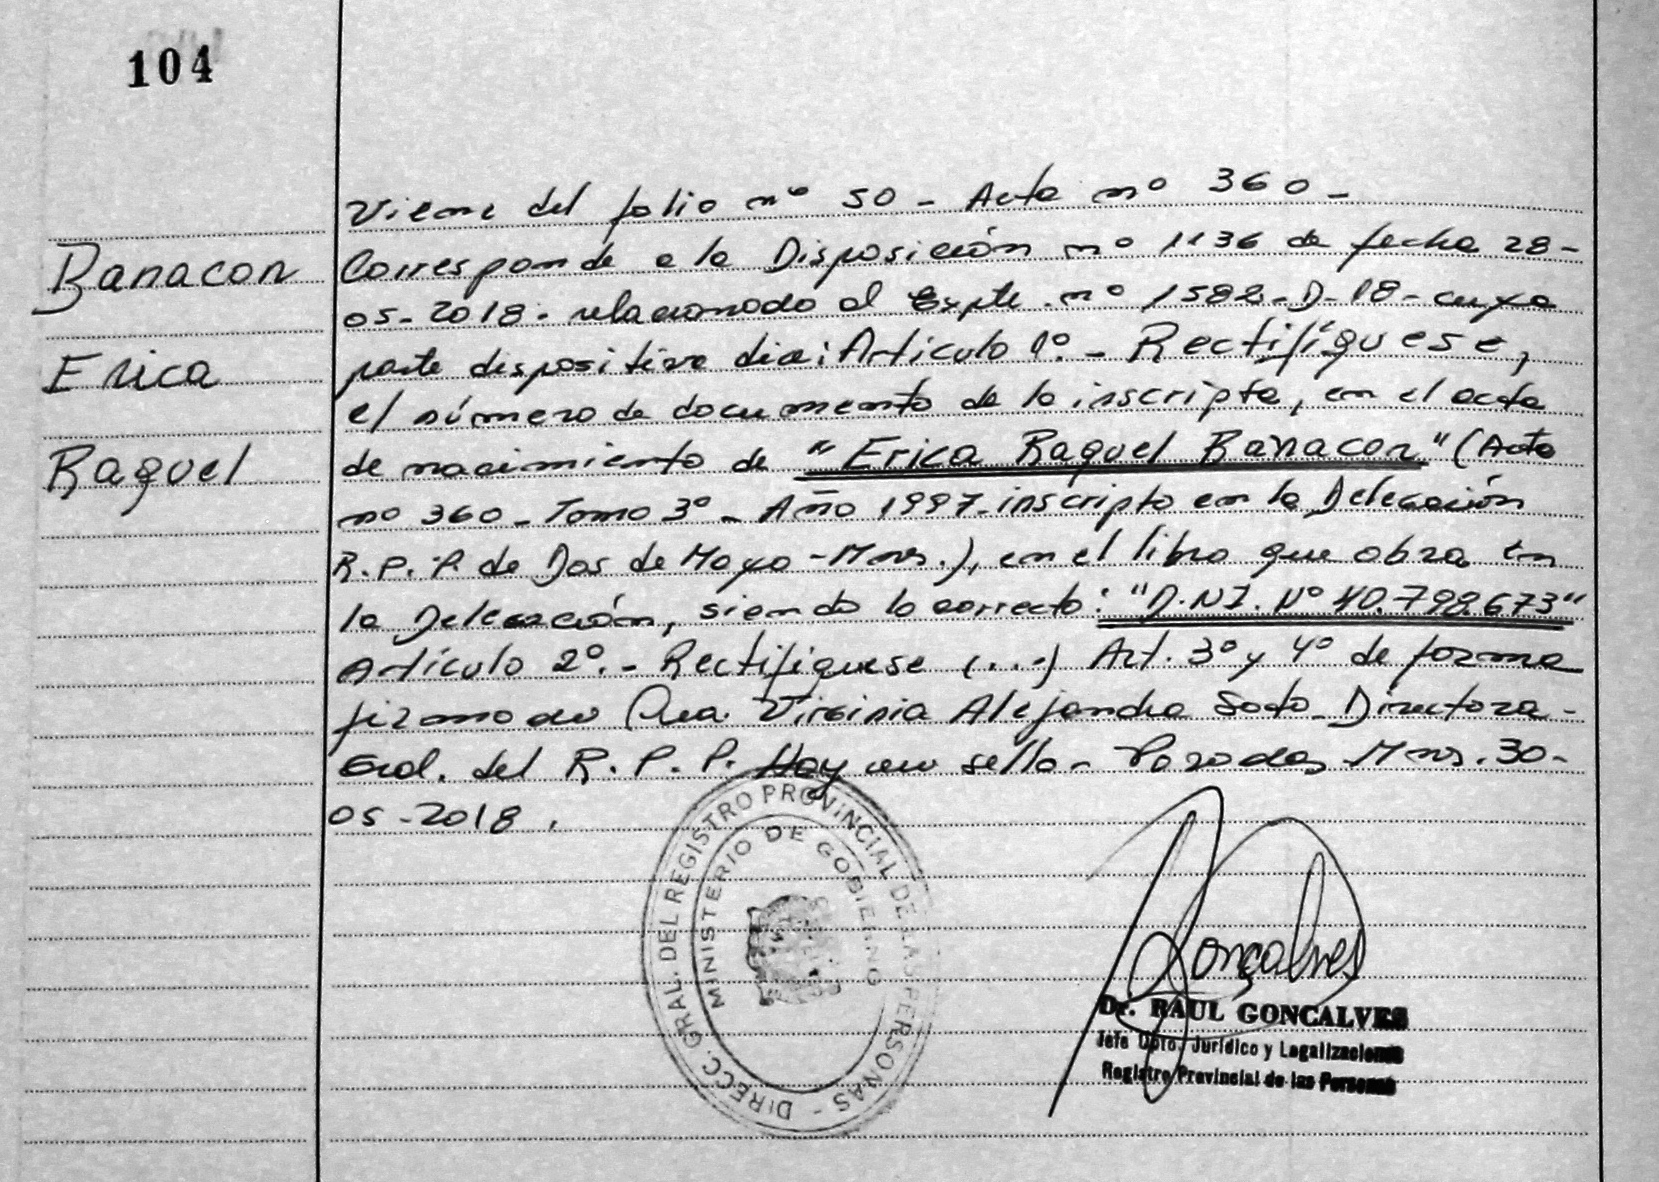 104
Banacon
Erica
Raquel
Viene del folio nº 50 - Acta nº 360 -
Corresponde a la Disposición nº 1136 de fecha 28-
05-2018. relacionado al Expte. nº 1582-D-18- cuya
parte dispositiva dice: Artículo 1º.- Rectifíquese,
el número de documento de la inscripta, en el acta
de nacimiento de "Erica Raquel Banacon" (Acta
nº 360 - Tomo 3º - Año 1997 - inscripto en la Delegación
R.P.P. de Dos de Mayo - Mnes.), en el libro que obra en
la Delegación, siendo lo correcto: "D.N.I. Nº 40.798.673"
Artículo 2º.- Rectifíquese (...) Art. 3º y 4º de forma
firmado Virginia Alejandra Soto - Directora -
Gral. del R.P.P. Hay un sello - Posadas Mnes. 30-
05-2018.
DIRECC. GRAL. DEL REGISTRO PROVINCIAL DE LAS PERSONAS -
MINISTERIO DE GOBIERNO
Gonçalves
Dr. RAUL GONCALVES
Jefe Dpto. Jurídico y Legalizaciones
Registro Provincial de las Personas